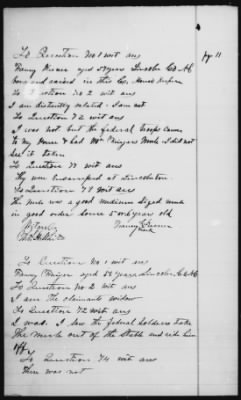 To Question No 1 wit ans
pg 11
aged 58 year Lincoln Co NC
born and raised in this Co House keeper
To Question No 2 wit ans
I am distantly related. I am not
To Question 72 wit ans
I was not but the federal troops came
to my House & had Mule I did not
see it taken
To Question 73 wit ans
They were Encamped at Lincolnton
To Question 78 wit ans
The mule was a good medium sized mule
in good order some 5 or 6 year old
To Question No 1 wit ans
aged 58 years Lincoln Co NC
To Question No 2 wit ans
I am the claimants widow
To Question 72 wit ans
I was. I saw the federal soldiers take
The mule out of the stable and ride him
off
To Question 74 wit ans
There was not